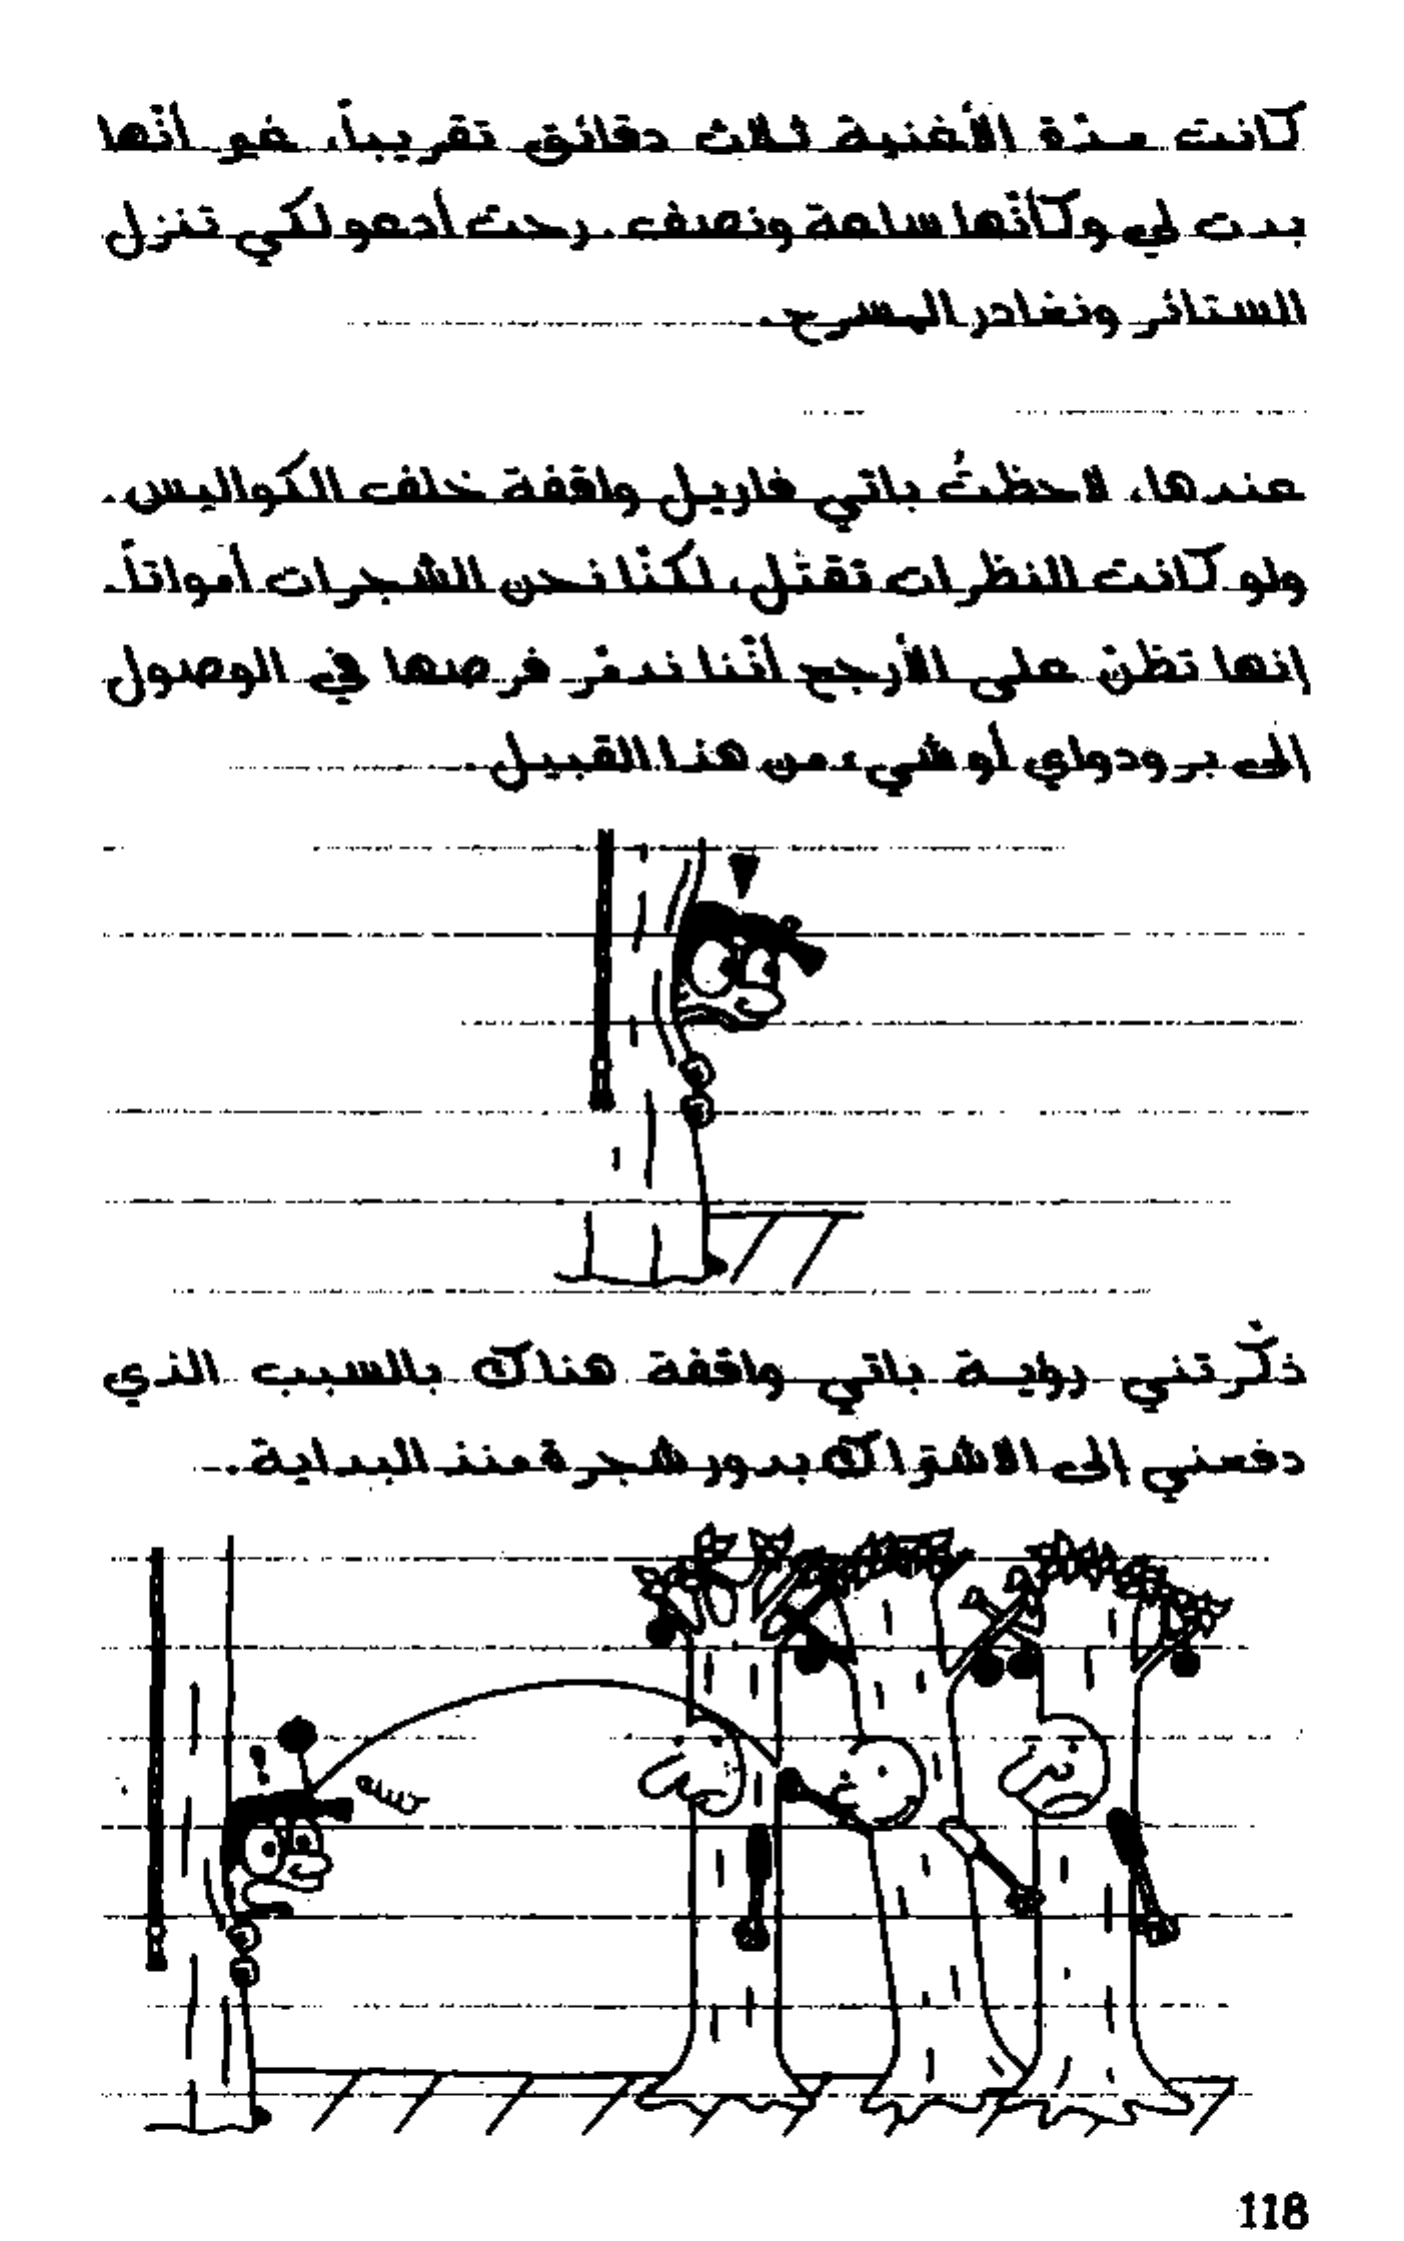 كانت مدّة الأغنية ثلاث دقائق تقريباً، غير أنّها
بدت لي وكأنّها ساعة ونصف. رحت أدعو لكي تنزل
الستائر ونغادر المسرح.
عندها، لاحظتُ باتي فاريل واقفة خلف الكواليس.
ولو كانت النظرات تقتل، لكنّا نحن الشجرات أمواتاً.
إنها تظنّ على الأرجح أنّنا ندمّر فرصها في الوصول
إلى برودواي أو شيء من هذا القبيل.
ذكّرتني رؤية باتي واقفة هناك بالسبب الذي
دفعني إلى الاشتراك بدور شجرة منذ البداية.
118